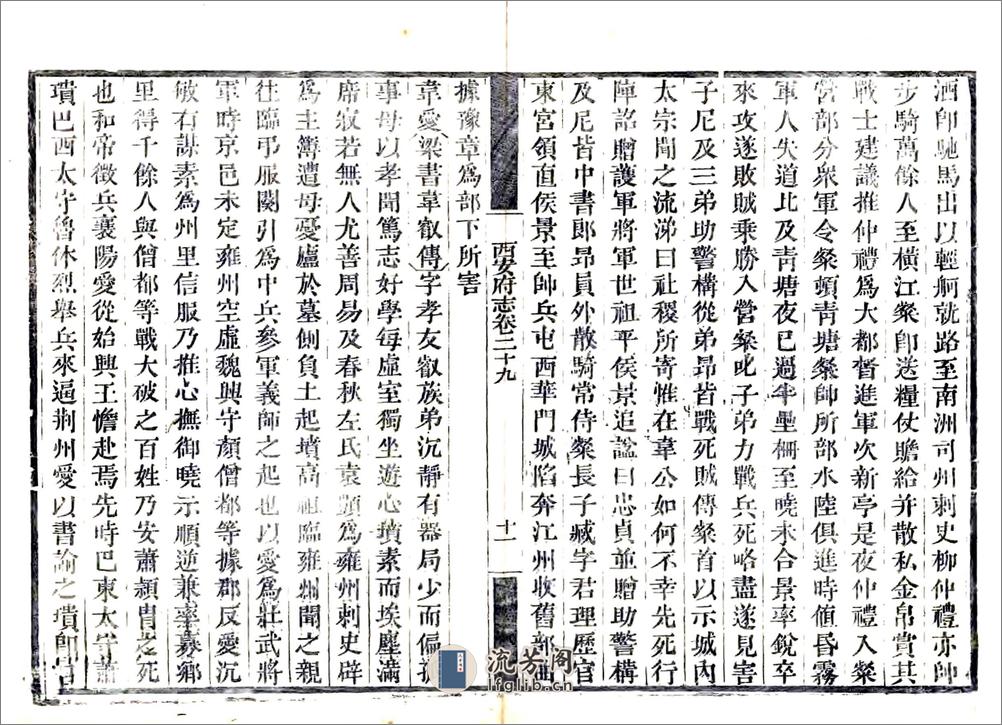 洒卽馳馬出以輕舸就路至南洲司州刺史柳仲禮亦帥
步騎萬餘人至橫江粲卽送糧仗贍給并散私金帛賞其
戰士建議推仲禮爲大都督進軍次新亭是夜仲禮入粲
營部分眾軍令粲頓青塘粲帥所部水陸俱進時値昏霧
軍人失道比及青塘夜已過半壘柵至曉未合景率銳卒
來攻遂敗賊乘勝入營粲叱子弟力戰兵死略盡遂見害
子尼及三弟助警構從弟昂皆戰死賊傳粲首以示城內
太宗聞之流涕曰社稷所寄惟在韋公如何不幸先死行
陣詔贈護軍將軍世祖平侯景追諡曰忠貞並贈助警構
及尼皆中書郎昂員外散騎常侍粲長子臧字君理歷官
東宮領直侯景至帥兵屯西華門城陷奔江州收舊部曲
西安府志卷二十九
十一
據豫章爲部下所害
韋愛梁書韋叡傳字孝友叡族弟沉靜有器局少而偏孤
事母以孝聞篤志好學每虛室獨坐遊心墳素而埃塵滿
席寂若無人尤善周易及春秋左氏袁顗爲雍州刺史辟
爲主簿遭母憂廬於墓側負土起墳高祖臨雍州聞之親
往臨弔服闋引爲中兵參軍義師之起也以愛爲壯武將
軍時京邑未定雍州空虛魏興守顏僧都等據郡反愛沉
敏有謀素爲州里信服乃推心撫御曉示順逆兼率募鄉
里得千餘人與僧都等戰大破之百姓乃安蕭頴胄之死
也和帝徵兵襄陽愛從始興王憺赴焉先時巴東太守蕭
璝巴西太守魯休烈舉兵來逼荆州愛以書諭之璝卽
流芳阁
lfglib.cn